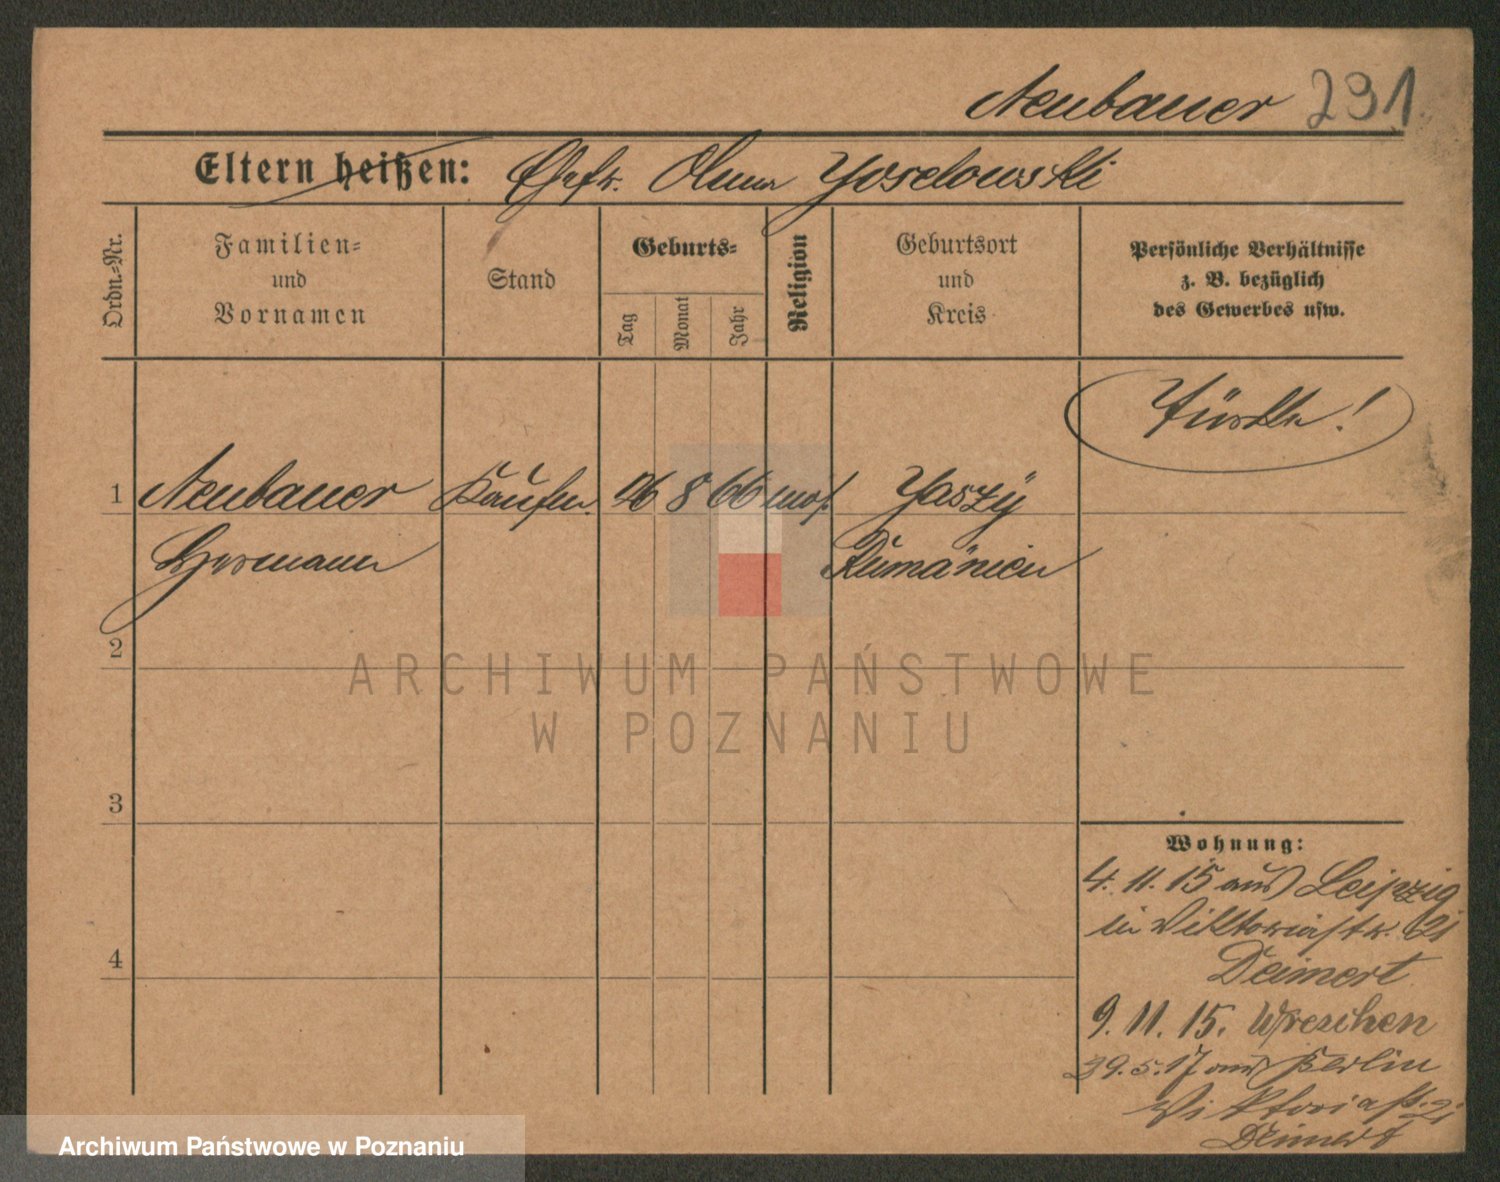 Neubauer 291
Eltern heißen: Ehefr. Yoselowski
Ordn.=Nr.
Familien=
und
Vornamen
Stand
Geburts=
Tag
Monat
Jahr
Religion
Geburtsort
und
Kreis
Persönliche Verhältnisse
z. B. bezüglich
des Gewerbes usw.
Türke!
1 Neubauer Kaufm. 8 66 mos. Jaszy
Hermann Rumänien
2
3
4
Wohnung:
4. 11. 15 aus Leipzig
in Viktoriastr. 21
Deimert
9. 11. 15. Wreschen
29. 5. 17 aus Berlin
Viktoriastr. 21
Deimert
ARCHIWUM PAŃSTWOWE
W POZNANIU
Archiwum Państwowe w Poznaniu